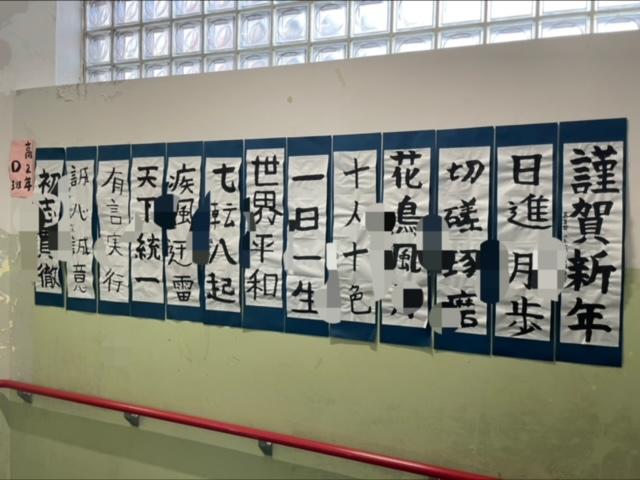 謹賀新年
日進月歩
切磋琢磨
花鳥風月
十人十色
一日一生
世界平和
七転八起
疾風迅雷
天下統一
有言実行
誠心誠意
初志貫徹
高2年
D班